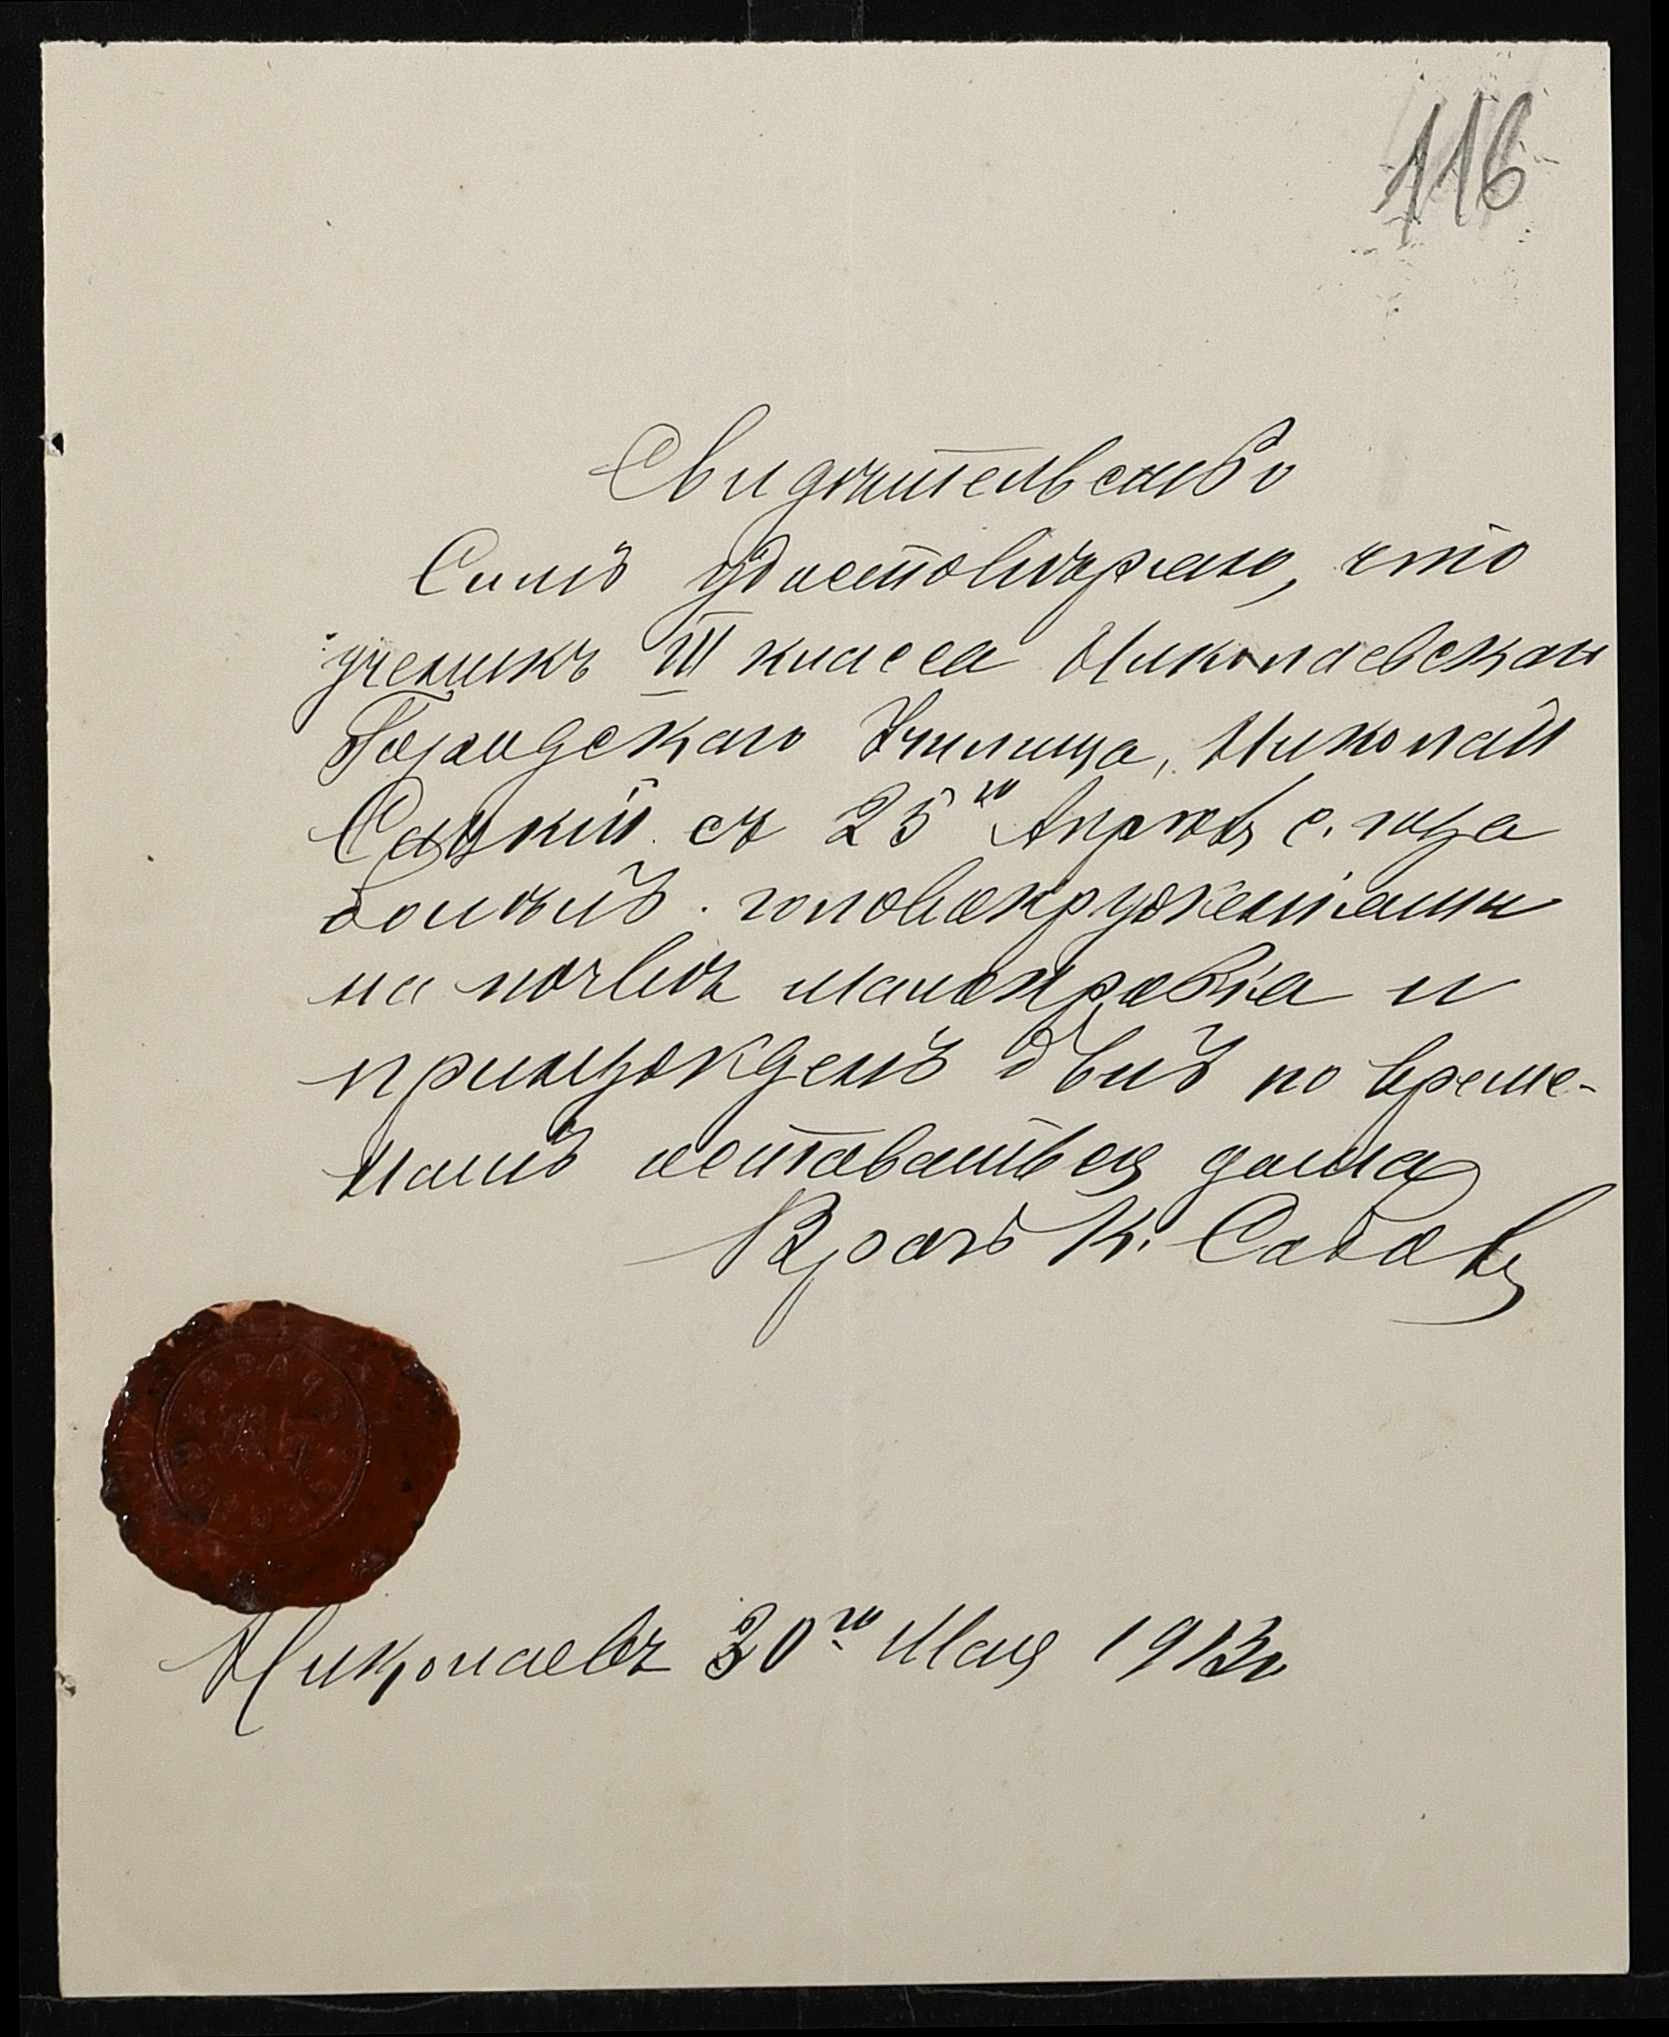 116
Свидѣтельство
Симъ удостовѣряю, что
ученикъ III класса Николаевскаго
Городского Училища, Николай
Сацкій съ 25го Апрѣля с. года
болѣлъ головокруженіями
на почвѣ малокровія и
принужденъ былъ по време-
намъ оставаться дома
Врачъ К.
Николаевъ 30го Мая 1913г